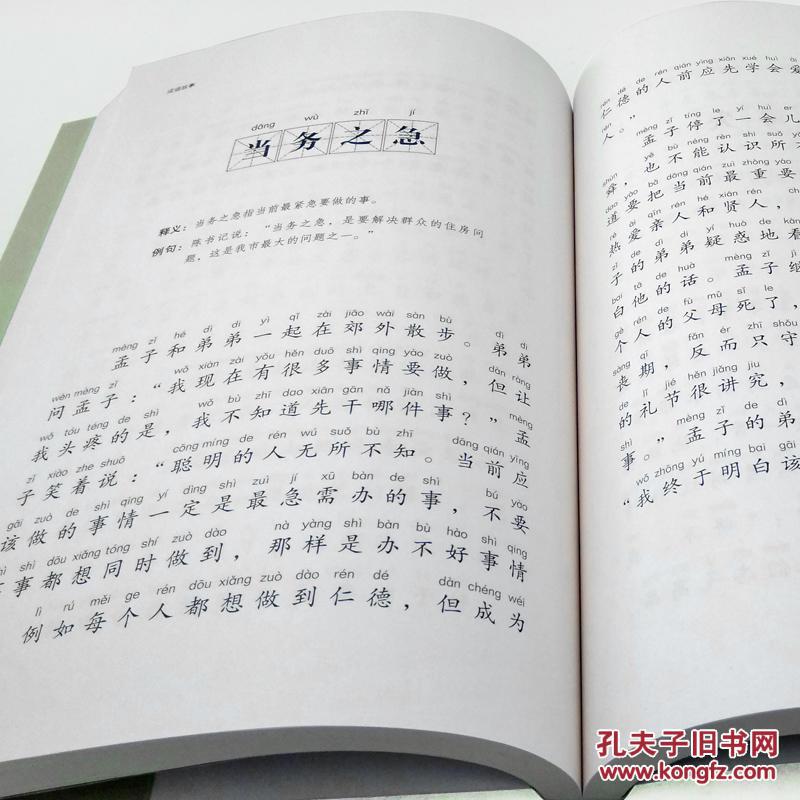 成语故事
dāng wù zhī jí
当务之急
释义：当务之急指当前最紧急要做的事。
例句：陈书记说：“当务之急，是要解决群众的住房问
题，这是我市最大的问题之一。”
mèng zǐ hé dì di yì qǐ zài jiāo wài sàn bù dì di
孟子和弟弟一起在郊外散步。弟弟
wèn mèng zǐ wǒ xiàn zài yǒu hěn duō shì qing yào zuò dàn ràng
问孟子：“我现在有很多事情要做，但让
wǒ tóu téng de shì wǒ bù zhī dao xiān gàn nǎ jiàn shì mèng
我头疼的是，我不知道先干哪件事？”孟
zǐ xiào zhe shuō cōng míng de rén wú suǒ bù zhī dāng qián yīng
子笑着说：“聪明的人无所不知。当前应
gāi zuò de shì qing yí dìng shì zuì jí xū bàn de shì bú yào
该做的事情一定是最急需办的事，不要
shì shì dōu xiǎng tóng shí zuò dào nà yàng shì bàn bù hǎo shì qing
事都想同时做到，那样是办不好事情
lì rú měi ge rén dōu xiǎng zuò dào rén dé dàn chéng wéi
例如每个人都想做到仁德，但成为
rén dé de rén qián yīng xiān xué huì ài
仁德的人前应先学会爱
rén mèng zǐ tíng le yí huì er
人。”孟子停了一会儿
shùn yě bù néng rèn shi suǒ
舜，也不能认识所
dào yào bǎ dāng qián zuì zhòng yào
道要把当前最重要
rè ài qīn rén hé xián rén
热爱亲人和贤人，
zǐ de dì di yí huò de kàn
子的弟弟疑惑地看
bai tā de huà mèng zǐ
白他的话。孟子继
gè rén de fù mǔ sǐ le
个人的父母死了，
sàng qī fǎn ér zhǐ shǒu
丧期，反而只守
de lǐ jié hěn jiǎng jiu
的礼节很讲究，
shì mèng zǐ de dì
事。”孟子的弟
wǒ zhōng yú míng bai gāi
“我终于明白该
孔夫子旧书网
www.kongfz.com